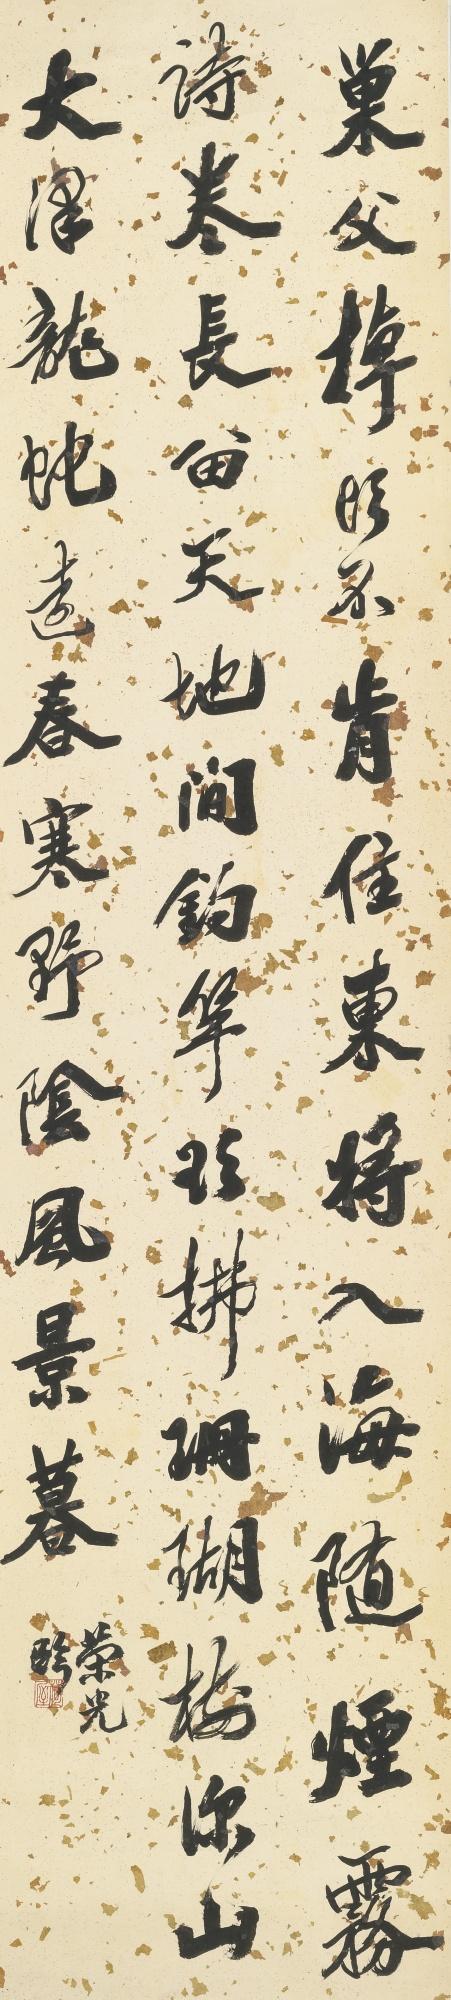 巢父掉頭不肯住東將入海随煙霧
詩卷長留天地間釣竿欲拂珊瑚樹深山
大澤龍蛇遠春寒野陰風景暮
榮光